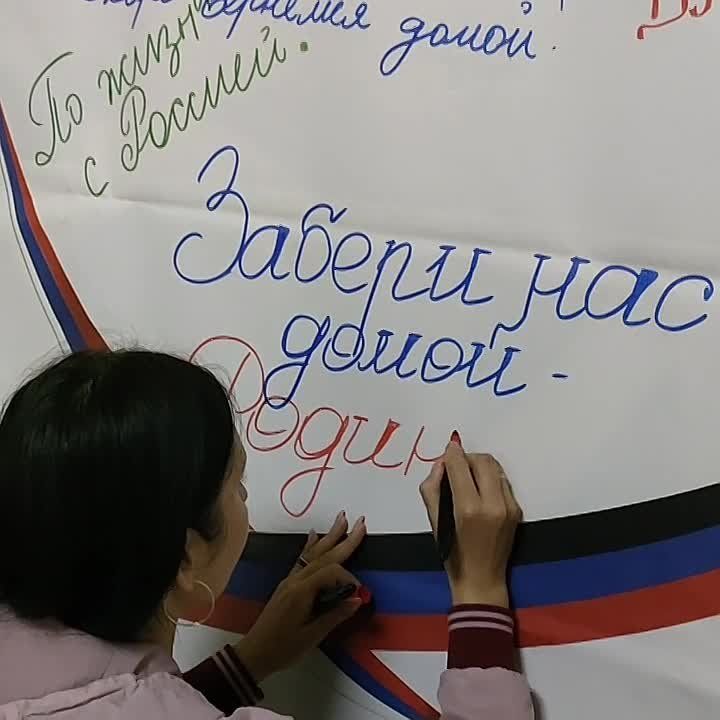 вернемся домой!
По жизни
с Россией.
Забери нас
домой -
Родин